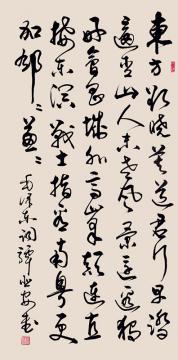 東方欲曉莫道君行早踏
遍青山人未老風景這邊獨
好會昌城外高峰顛連直
接東溟戰士指看南粤更
加郁々葱々
毛澤東詞譚